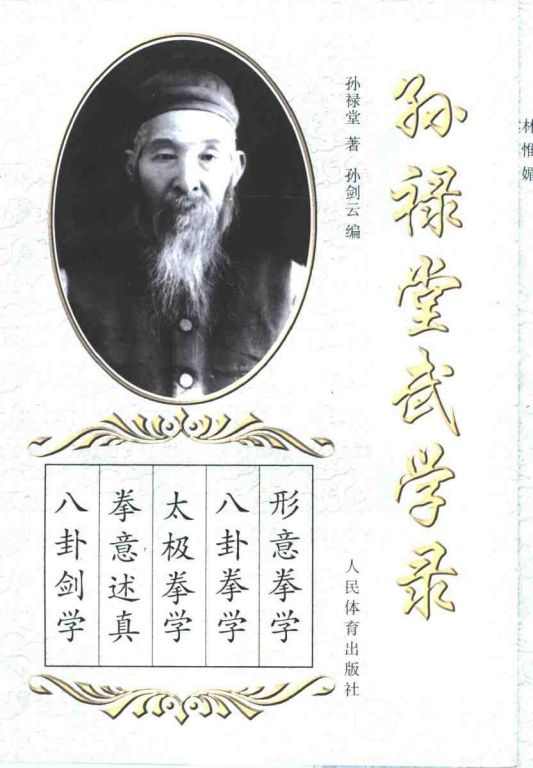 孙禄堂武学录
孙禄堂 著 孙剑云 编
形意拳学
八卦拳学
太极拳学
拳意述真
八卦剑学
人民体育出版社
林惟媚